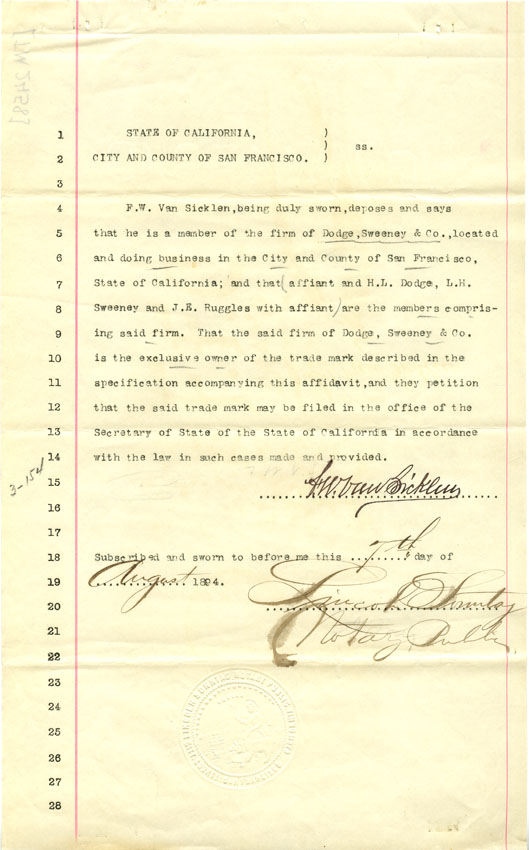 [TM 2458]
1 STATE OF CALIFORNIA, )
) ss.
2 CITY AND COUNTY OF SAN FRANCISCO. )
3
4 F.W. Van Sicklen,being duly sworn,deposes and says
5 that he is a member of the firm of Dodge,Sweeney & Co.,located
6 and doing business in the City and County of San Francisco,
7 State of California; and that (affiant and H.L. Dodge, L.H.
8 Sweeney and J.E. Ruggles with affiant) are the members compris-
9 ing said firm. That the said firm of Dodge, Sweeney & Co.
10 is the exclusive owner of the trade mark described in the
11 specification accompanying this affidavit,and they petition
12 that the said trade mark may be filed in the office of the
13 Secretary of State of the State of California in accordance
14 with the law in such cases made and provided.
3-154
15 F.W. Van Sicklen
16
17
18 Subscribed and sworn to before me this 7th day of
19 August 1894.
20
21 Notary Public
22
23
24
25
26
27
28